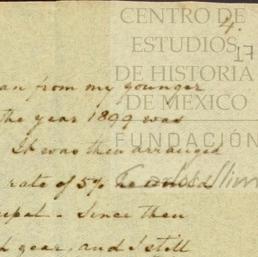 CENTRO DE
ESTUDIOS
DE HISTORIA
DE MÉXICO
FUNDACIÓN
Carlos Slim
4.
17
an from my younger
the year 1899 was
It was then arranged
rate of 5% he
ipal - Since then
year, and I still